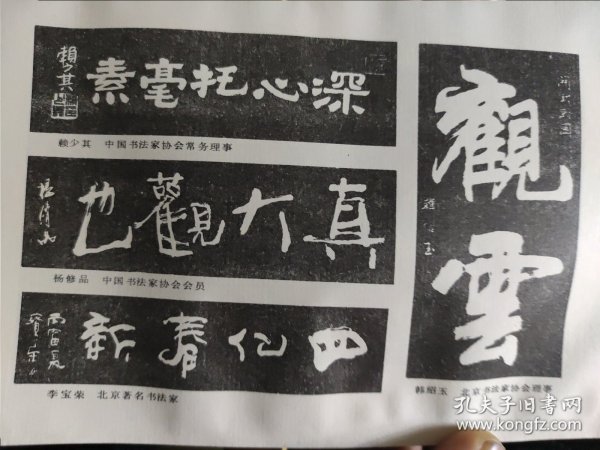 深心托毫素
賴少其
赖少其 中国书法家协会常务理事
真大觀也
杨修品 中国书法家协会会员
四化春新
李宝荣 北京著名书法家
觀雲
韩绍玉 北京书法家协会理事
孔夫子旧书网
www.kongfz.com